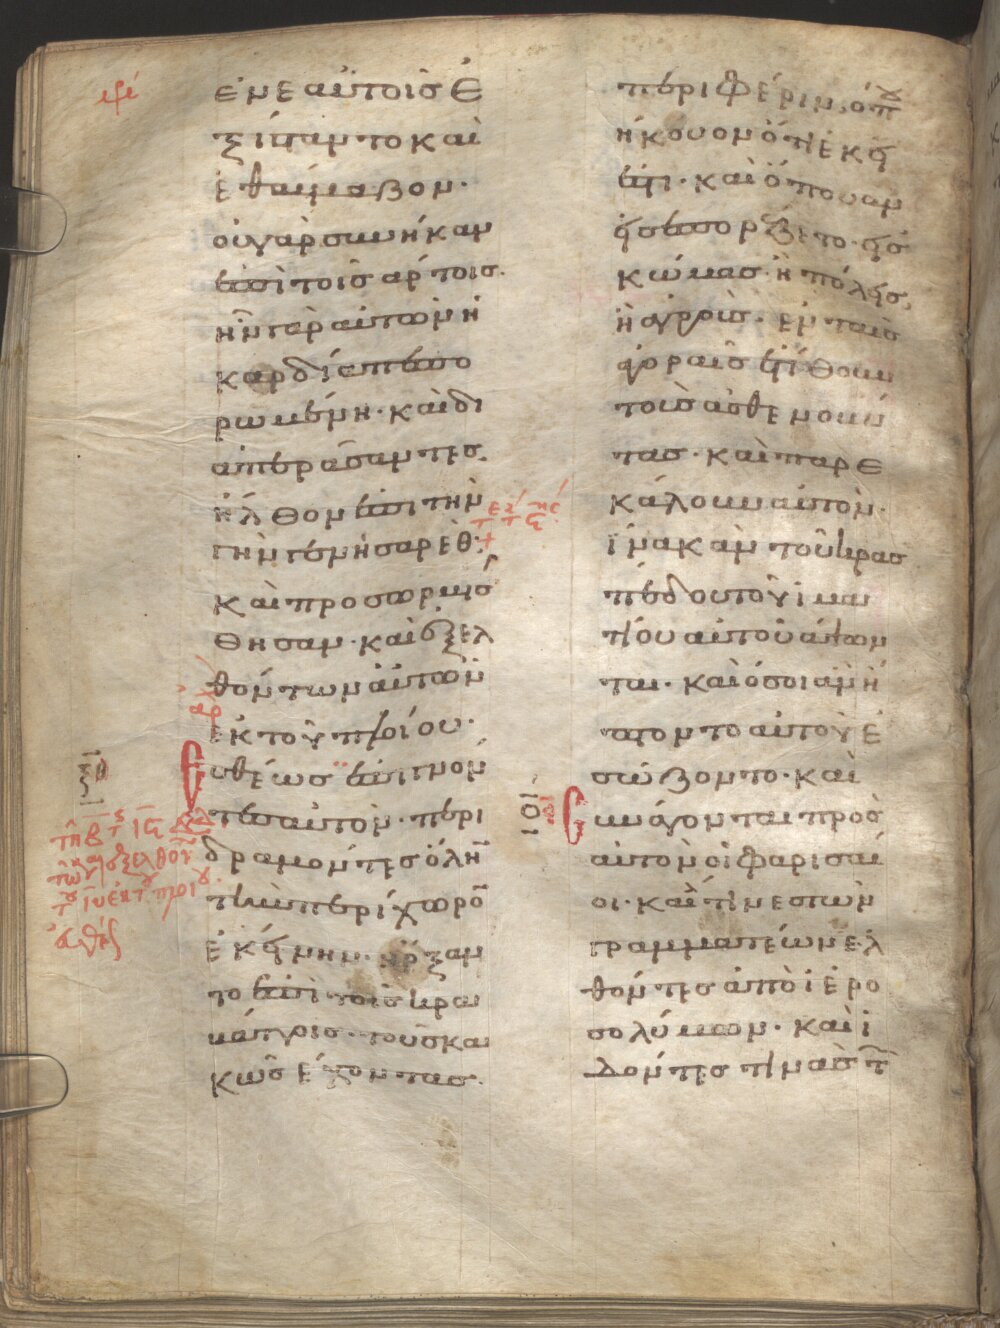 ἐν ἑαυτοῖσ ἐ
ξίσταντο καὶ
ἐθαύμαζον·
οὐ γὰρ συνῆκαν
ἐπὶ τοῖσ ἄρτοισ·
ἦν γὰρ αὐτῶν ἡ
καρδία πεπο
ρωμένη· καὶ δι
απεράσαντεσ
ἦλθον ἐπὶ τὴν
γῆν γεννησαρέθ·
καὶ προσωρμίσ
θησαν· καὶ ἐξελ
θόντων αὐτῶν
ἐκ τοῦ πλοίου·
Εὐθέωσ ἐπιγνόν
τεσ αὐτὸν· περι
δραμόντεσ ὅλην
τὴν περίχωρον
ἐκείνην· ἤρξαν
το ἐπὶ τοῖσ κρα
βάττοισ· τοὺσ κα
κῶσ ἔχοντασ·
περιφέρειν· ὅπου
ἤκουον ὅτι ἐκεῖ
ἐστι· καὶ ὅπου ἂν
εἰσεπορεύετο· εἰσ
κώμασ· ἢ πόλεισ
ἢ ἀγροὺσ· ἐν ταῖσ
ἀγοραῖσ ἐτίθουν
τοὺσ ἀσθενοῦν
τασ· καὶ παρε
κάλουν αὐτὸν·
ἵνα κἂν τοῦ κρασ
πέδου τοῦ ἱμα
τίου αὐτοῦ ἅψων
ται· καὶ ὅσοι ἂν ἥ
πτοντο αὐτοῦ ἐ
σώζοντο· καὶ
Συνάγονται πρὸσ
αὐτὸν οἱ φαρισαῖ
οι· καί τινεσ τῶν
γραμματέων ἐλ
θόντεσ ἀπὸ ἱερο
σολύμων· καὶ ἰ
δόντεσ τινὰσ τῶν